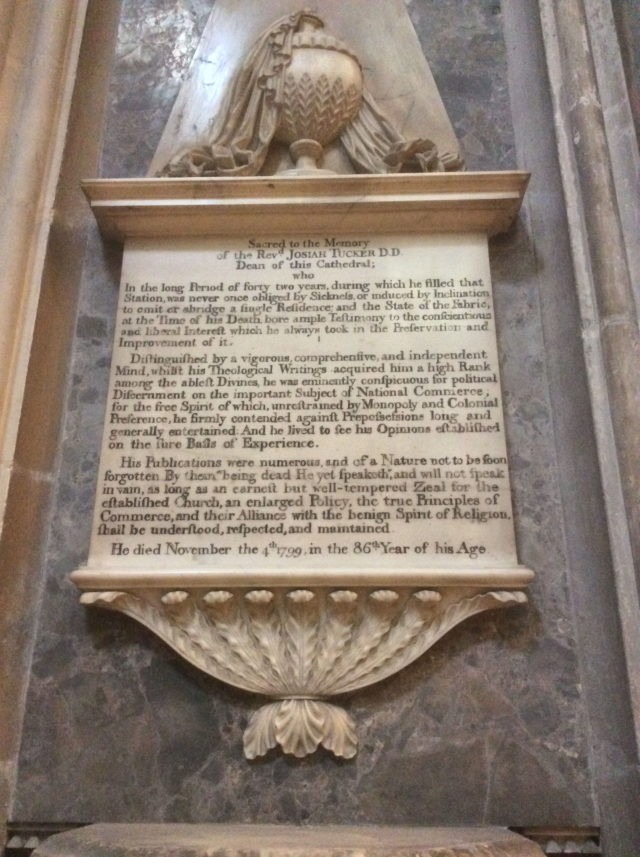 Sacred to the Memory
of the Revd JOSIAH TUCKER D.D.
Dean of this Cathedral;
who
In the long Period of forty two years, during which he filled that
Station, was never once obliged by Sickneſs, or induced by Inclination
to omit or abridge a ſingle Reſidence; and the State of the Fabric,
at the Time of his Death, bore ample Teſtimony to the conſcientious
and liberal Intereſt which he always took in the Preſervation and
Improvement of it.
Diſtinguiſhed by a vigorous, comprehenſive, and independent
Mind, whilſt his Theological Writings acquired him a high Rank
among the ableſt Divines, he was eminently conſpicuous for political
Diſcernment on the important Subject of National Commerce;
for the free Spirit of which, unreſtrained by Monopoly and Colonial
Preference, he firmly contended againſt Prepoſseſsions long and
generally entertained. And he lived to ſee his Opinions eſtabliſhed
on the ſure Baſis of Experience.
His Publications were numerous, and of a Nature not to be ſoon
forgotten. By them, "being dead He yet ſpeaketh", and will not ſpeak
in vain, as long as an earneſt but well-tempered Zeal for the
eſtabliſhed Church, an enlarged Policy, the true Principles of
Commerce, and their Alliance with the benign Spirit of Religion,
ſhall be underſtood, reſpected, and maintained.
He died November the 4th 1799, in the 86th Year of his Age.